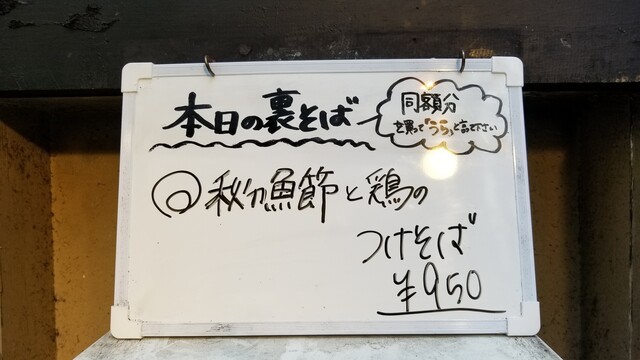 本日の裏そば
同額分
を買って「うら」と言って下さい
◎秘伝魚節と鶏の
つけそば
¥950